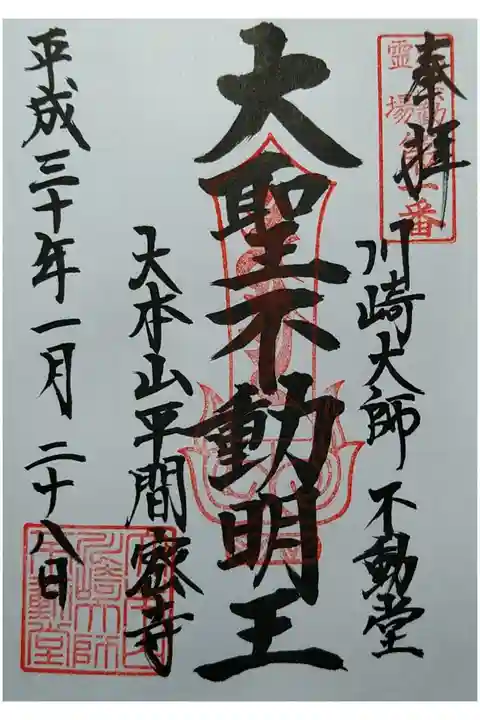 奉拝
川崎大師 不動堂
大聖不動明王
大本山平間寺
平成三十年一月二十八日